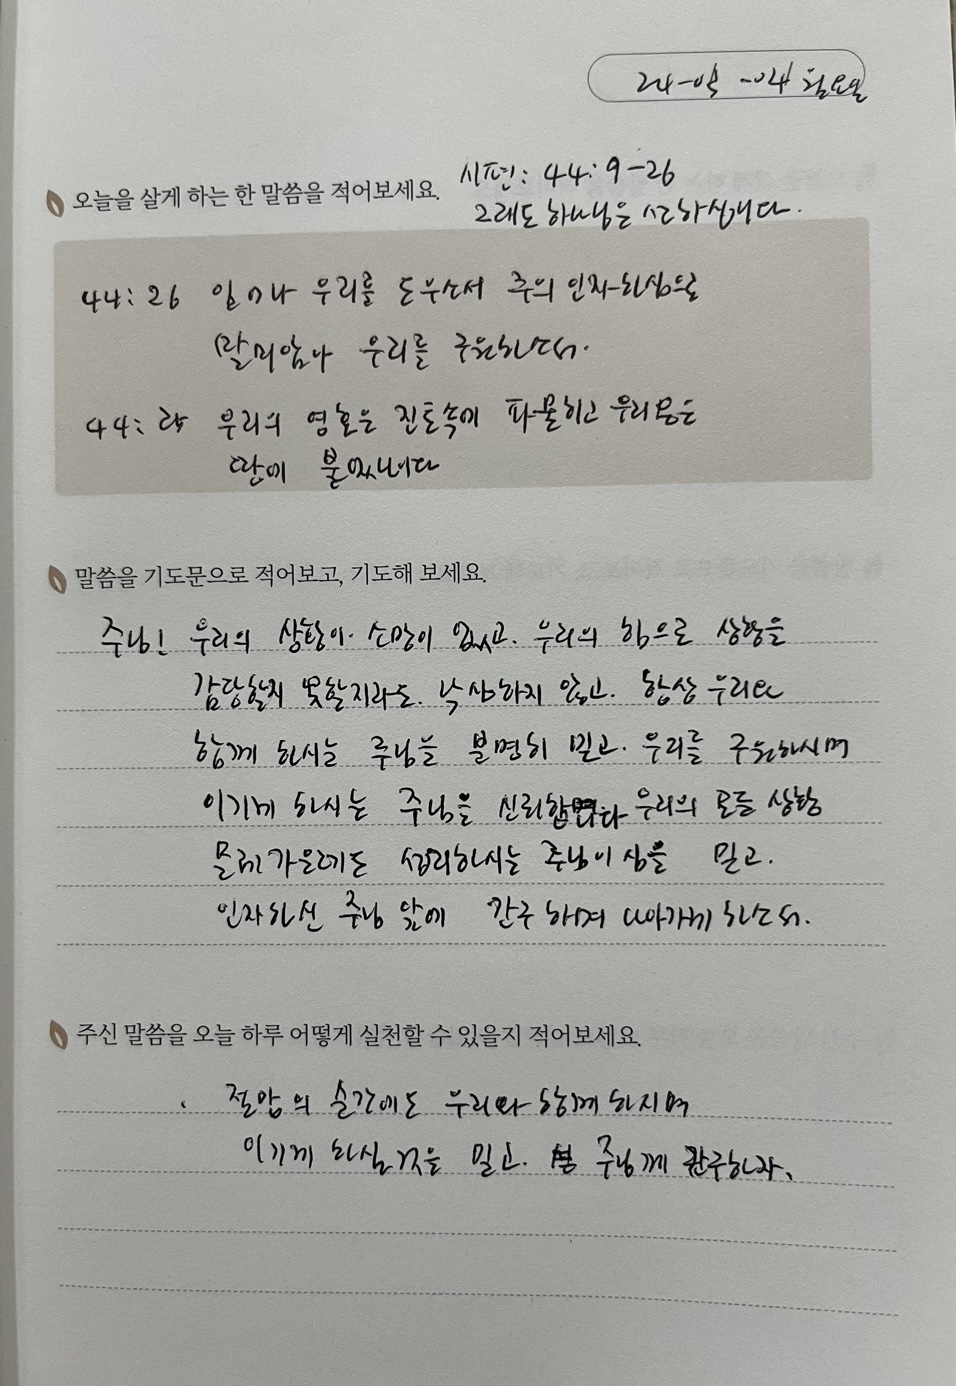 24-05-04 월요일
시편: 44:9-26
오늘을 살게 하는 한 말씀을 적어보세요.
그래도 하나님은 선하십니다.
44:26 일어나 우리를 도우소서 주의 인자하심으로
말미암아 우리를 구원하소서.
44:25 우리의 영혼은 진토속에 파묻히고 우리 몸은
땅에 붙었나이다
말씀을 기도문으로 적어보고, 기도해 보세요.
주님! 우리의 상황이 소망이 없고. 우리의 힘으로 상황을
감당할지 못할지라도. 낙심하지 않고. 항상 우리와
함께 하시는 주님을 분명히 믿고. 우리를 구원하시며
이기게 하시는 주님을 신뢰합니다 우리의 모든 상황
문제 가운데도 섭리하시는 주님이심을 믿고.
인자하신 주님 앞에 간구하며 나아가게 하소서.
주신 말씀을 오늘 하루 어떻게 실천할 수 있을지 적어보세요.
절망의 순간에도 우리와 함께 하시며
이기게 하실것을 믿고. 주님께 간구하자.